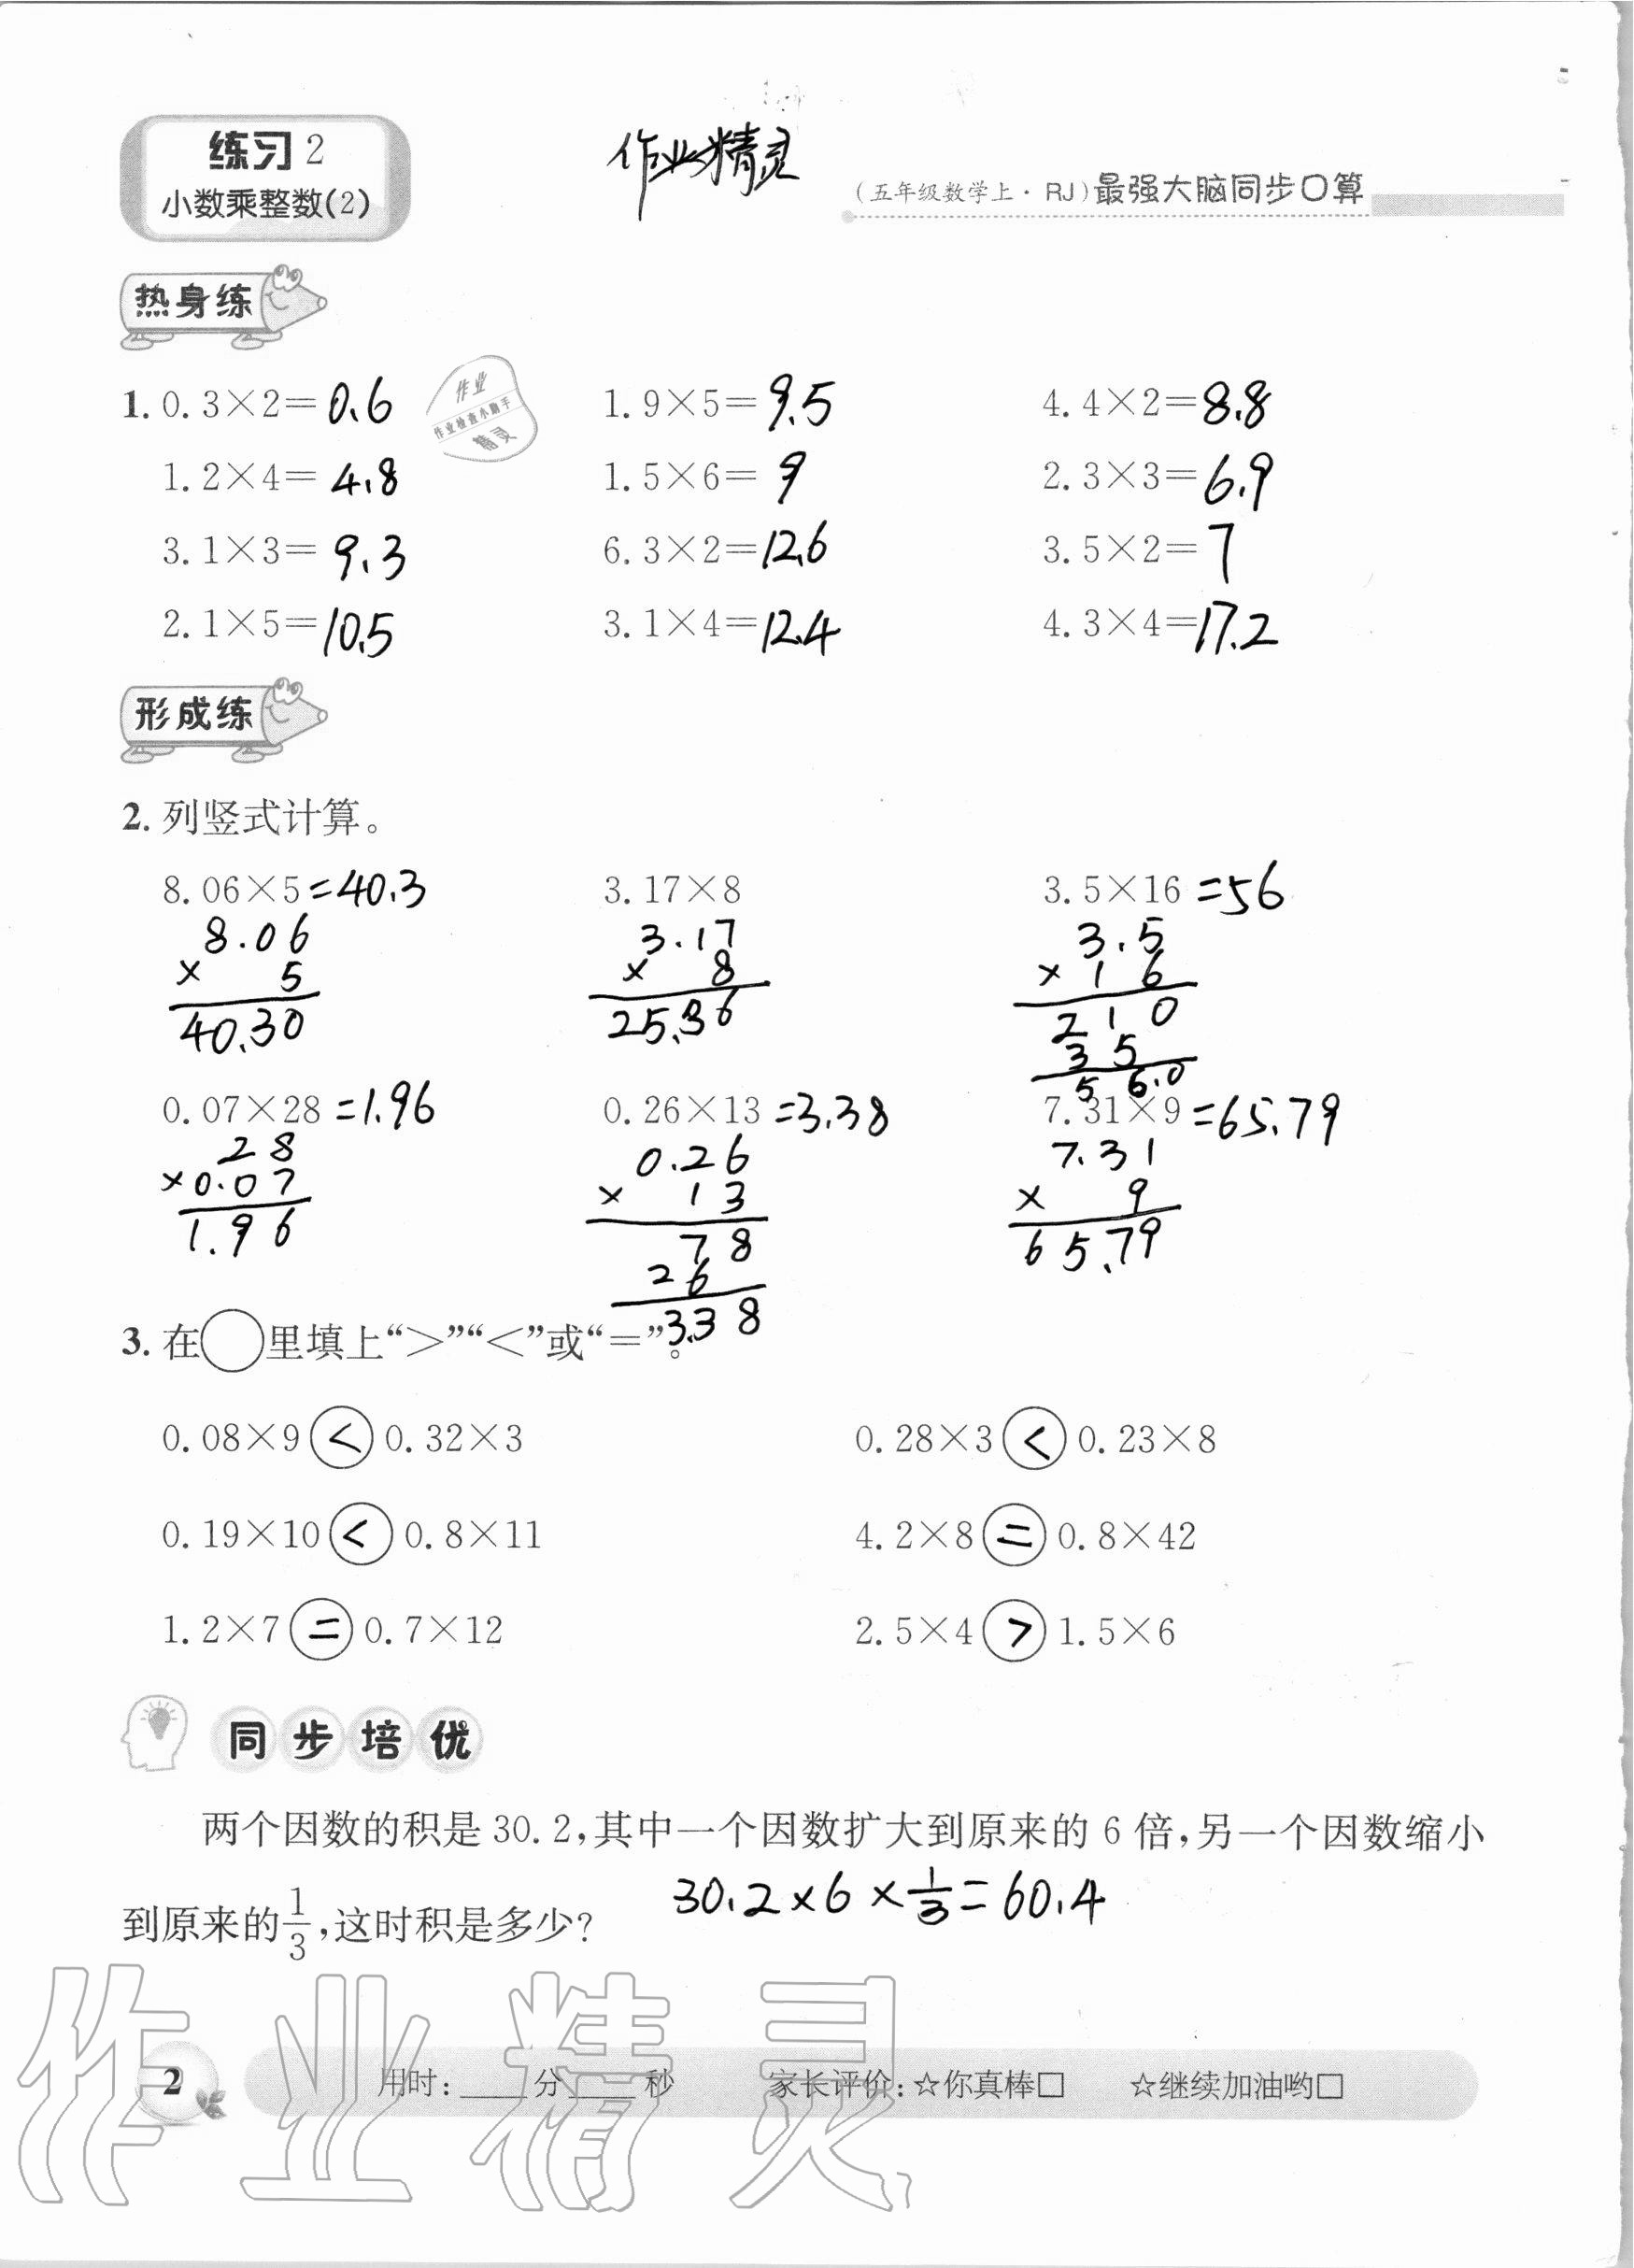 练习2
小数乘整数(2)
作业精灵
(五年级数学上·RJ)最强大脑同步口算
热身练
作业
作业检查小助手
精灵
1. 0.3×2=0.6 1.9×5=9.5 4.4×2=8.8
1.2×4=4.8 1.5×6=9 2.3×3=6.9
3.1×3=9.3 6.3×2=12.6 3.5×2=7
2.1×5=10.5 3.1×4=12.4 4.3×4=17.2
形成练
2. 列竖式计算。
8.06×5=40.3 3.17×8 3.5×16=56
8.06 3.17 3.5
× 5 × 8 × 1 6
40.30 25.36 2 1 0
3 5
5 6.0
0.07×28=1.96 0.26×13=3.38 7.31×9=65.79
2 8 0.26 7.31
×0.07 × 1 3 × 9
1.96 7 8 65.79
2 6
3.38
3. 在○里填上“>”“<”或“=”。
0.08×9<0.32×3 0.28×3<0.23×8
0.19×10<0.8×11 4.2×8=0.8×42
1.2×7=0.7×12 2.5×4>1.5×6
同步培优
两个因数的积是30.2,其中一个因数扩大到原来的6倍,另一个因数缩小
到原来的1/3,这时积是多少? 30.2×6×1/3=60.4
作业精灵
2 用时:____分____秒 家长评价:☆你真棒□ ☆继续加油哟□